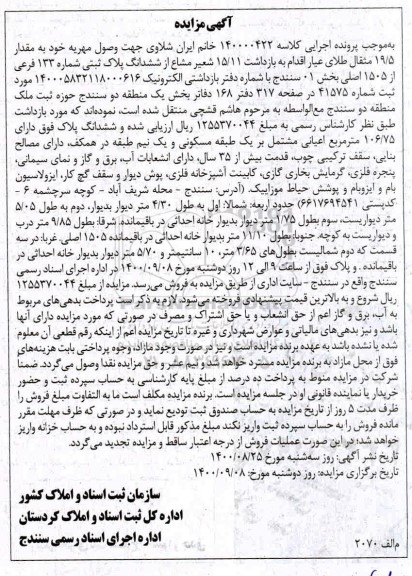 آگهی مزایده
به‌موجب پرونده اجرایی کلاسه ۱۴۰۰۰۰۴۲۲ خانم ایران شلاوی جهت وصول مهریه خود به مقدار
۱۹/۵ مثقال طلای عیار اقدام به بازداشت ۱۵/۱۱ شعیر مشاع از ششدانگ پلاک ثبتی شماره ۱۳۳ فرعی
از ۱۵۰۵ اصلی بخش ۰۱ سنندج با شماره دفتر بازداشتی الکترونیک ۱۴۰۰۰۵۸۳۲۱۱۸۰۰۰۶۱۶ مورد
ثبت شماره ۴۱۵۷۵ صفحه ۳۱۷ دفتر ۱۶۸ دفاتر بخش یک منطقه دو سنندج حوزه ثبت ملک
منطقه دو سنندج مع‌الواسطه به مرحوم هاشم قشچی منتقل شده است، نموده‌اند که مورد بازداشت
طبق نظر کارشناس رسمی به مبلغ ۱۲۵۵۳۷۰۰۴۴ ریال ارزیابی شده و ششدانگ پلاک فوق دارای
۱۰۶/۷۵ مترمربع اعیانی مشتمل بر یک طبقه مسکونی و یک نیم طبقه در همکف، دارای مصالح
بنایی، سقف ترکیبی چوب، قدمت بیش از ۳۵ سال، دارای انشعابات آب، برق و گاز و نمای سیمانی،
پنجره فلزی، گرمایش بخاری گازی، کابینت آشپزخانه فلزی، پوش دیوار و سقف گچ کار، ایزولاسیون
بام و ایزوبام و پوشش حیاط موزاییک. (آدرس: سنندج - محله شریف آباد - کوچه سرچشمه ۶ -
کدپستی ۶۶۱۷۶۹۴۵۴۱) حدود اربعه: شمالا: اول به طول ۴/۳۰ متر دیوار بدیوار، دوم به طول ۵/۰۵
متر دیواریست، سوم بطول ۱/۷۵ متر دیوار بدیوار خانه احداثی در باقیمانده. شرقا: بطول ۹/۸۵ متر درب
و دیواریست به کوچه. جنوبا: بطول ۱۱/۱۰ متر بدیوار خانه احداثی در باقیمانده ۱۵۰۵ اصلی. غربا: در سه
قسمت که دوم شمالیست بطول‌های ۳/۶۵ متر، ۱۰۰ سانتیمتر و ۵/۷۰ متر دیوار بدیوار خانه احداثی در
باقیمانده. و پلاک فوق از ساعت ۹ الی ۱۲ روز دوشنبه مورخ ۱۴۰۰/۰۹/۰۸ در اداره اجرای اسناد رسمی
سنندج واقع در سنندج - سایت اداری از طریق مزایده به فروش می‌رسد. مزایده از مبلغ ۱۲۵۵۳۷۰۰۴۴
ریال شروع و به بالاترین قیمت پیشنهادی فروخته می‌شود. لازم به ذکر است پرداخت بدهی‌های مربوط
به آب، برق و گاز اعم از حق انشعاب و یا حق اشتراک و مصرف در صورتی که مورد مزایده دارای آنها
باشد و نیز بدهی‌های مالیاتی و عوارض شهرداری و غیره تا تاریخ مزایده اعم از اینکه رقم قطعی آن معلوم
شده یا نشده باشد به عهده برنده مزایده است و نیز در صورت وجود مازاد، وجوه پرداختی بابت هزینه‌های
فوق از محل مازاد به برنده مزایده مسترد خواهد شد و نیم عشر و حق مزایده نقدا وصول می‌گردد. ضمنا
شرکت در مزایده منوط به پرداخت ده درصد از مبلغ پایه کارشناسی به حساب سپرده ثبت و حضور
خریدار یا نماینده قانونی او در جلسه مزایده است. برنده مزایده مکلف است ما به التفاوت مبلغ فروش را
ظرف مدت ۵ روز از تاریخ مزایده به حساب صندوق ثبت تودیع نماید و در صورتی که ظرف مهلت مقرر
مانده فروش را به حساب سپرده ثبت واریز نکند مبلغ مذکور قابل استرداد نبوده و به حساب خزانه واریز
خواهد شد؛ در این صورت عملیات فروش از درجه اعتبار ساقط و مزایده تجدید می‌گردد.
تاریخ نشر آگهی: روز سه‌شنبه مورخ ۱۴۰۰/۰۸/۲۵
تاریخ برگزاری مزایده: روز دوشنبه مورخ: ۱۴۰۰/۰۹/۰۸
سازمان ثبت اسناد و املاک کشور
اداره کل ثبت اسناد و املاک کردستان
اداره اجرای اسناد رسمی سنندج
م‌الف ۲۰۷۰